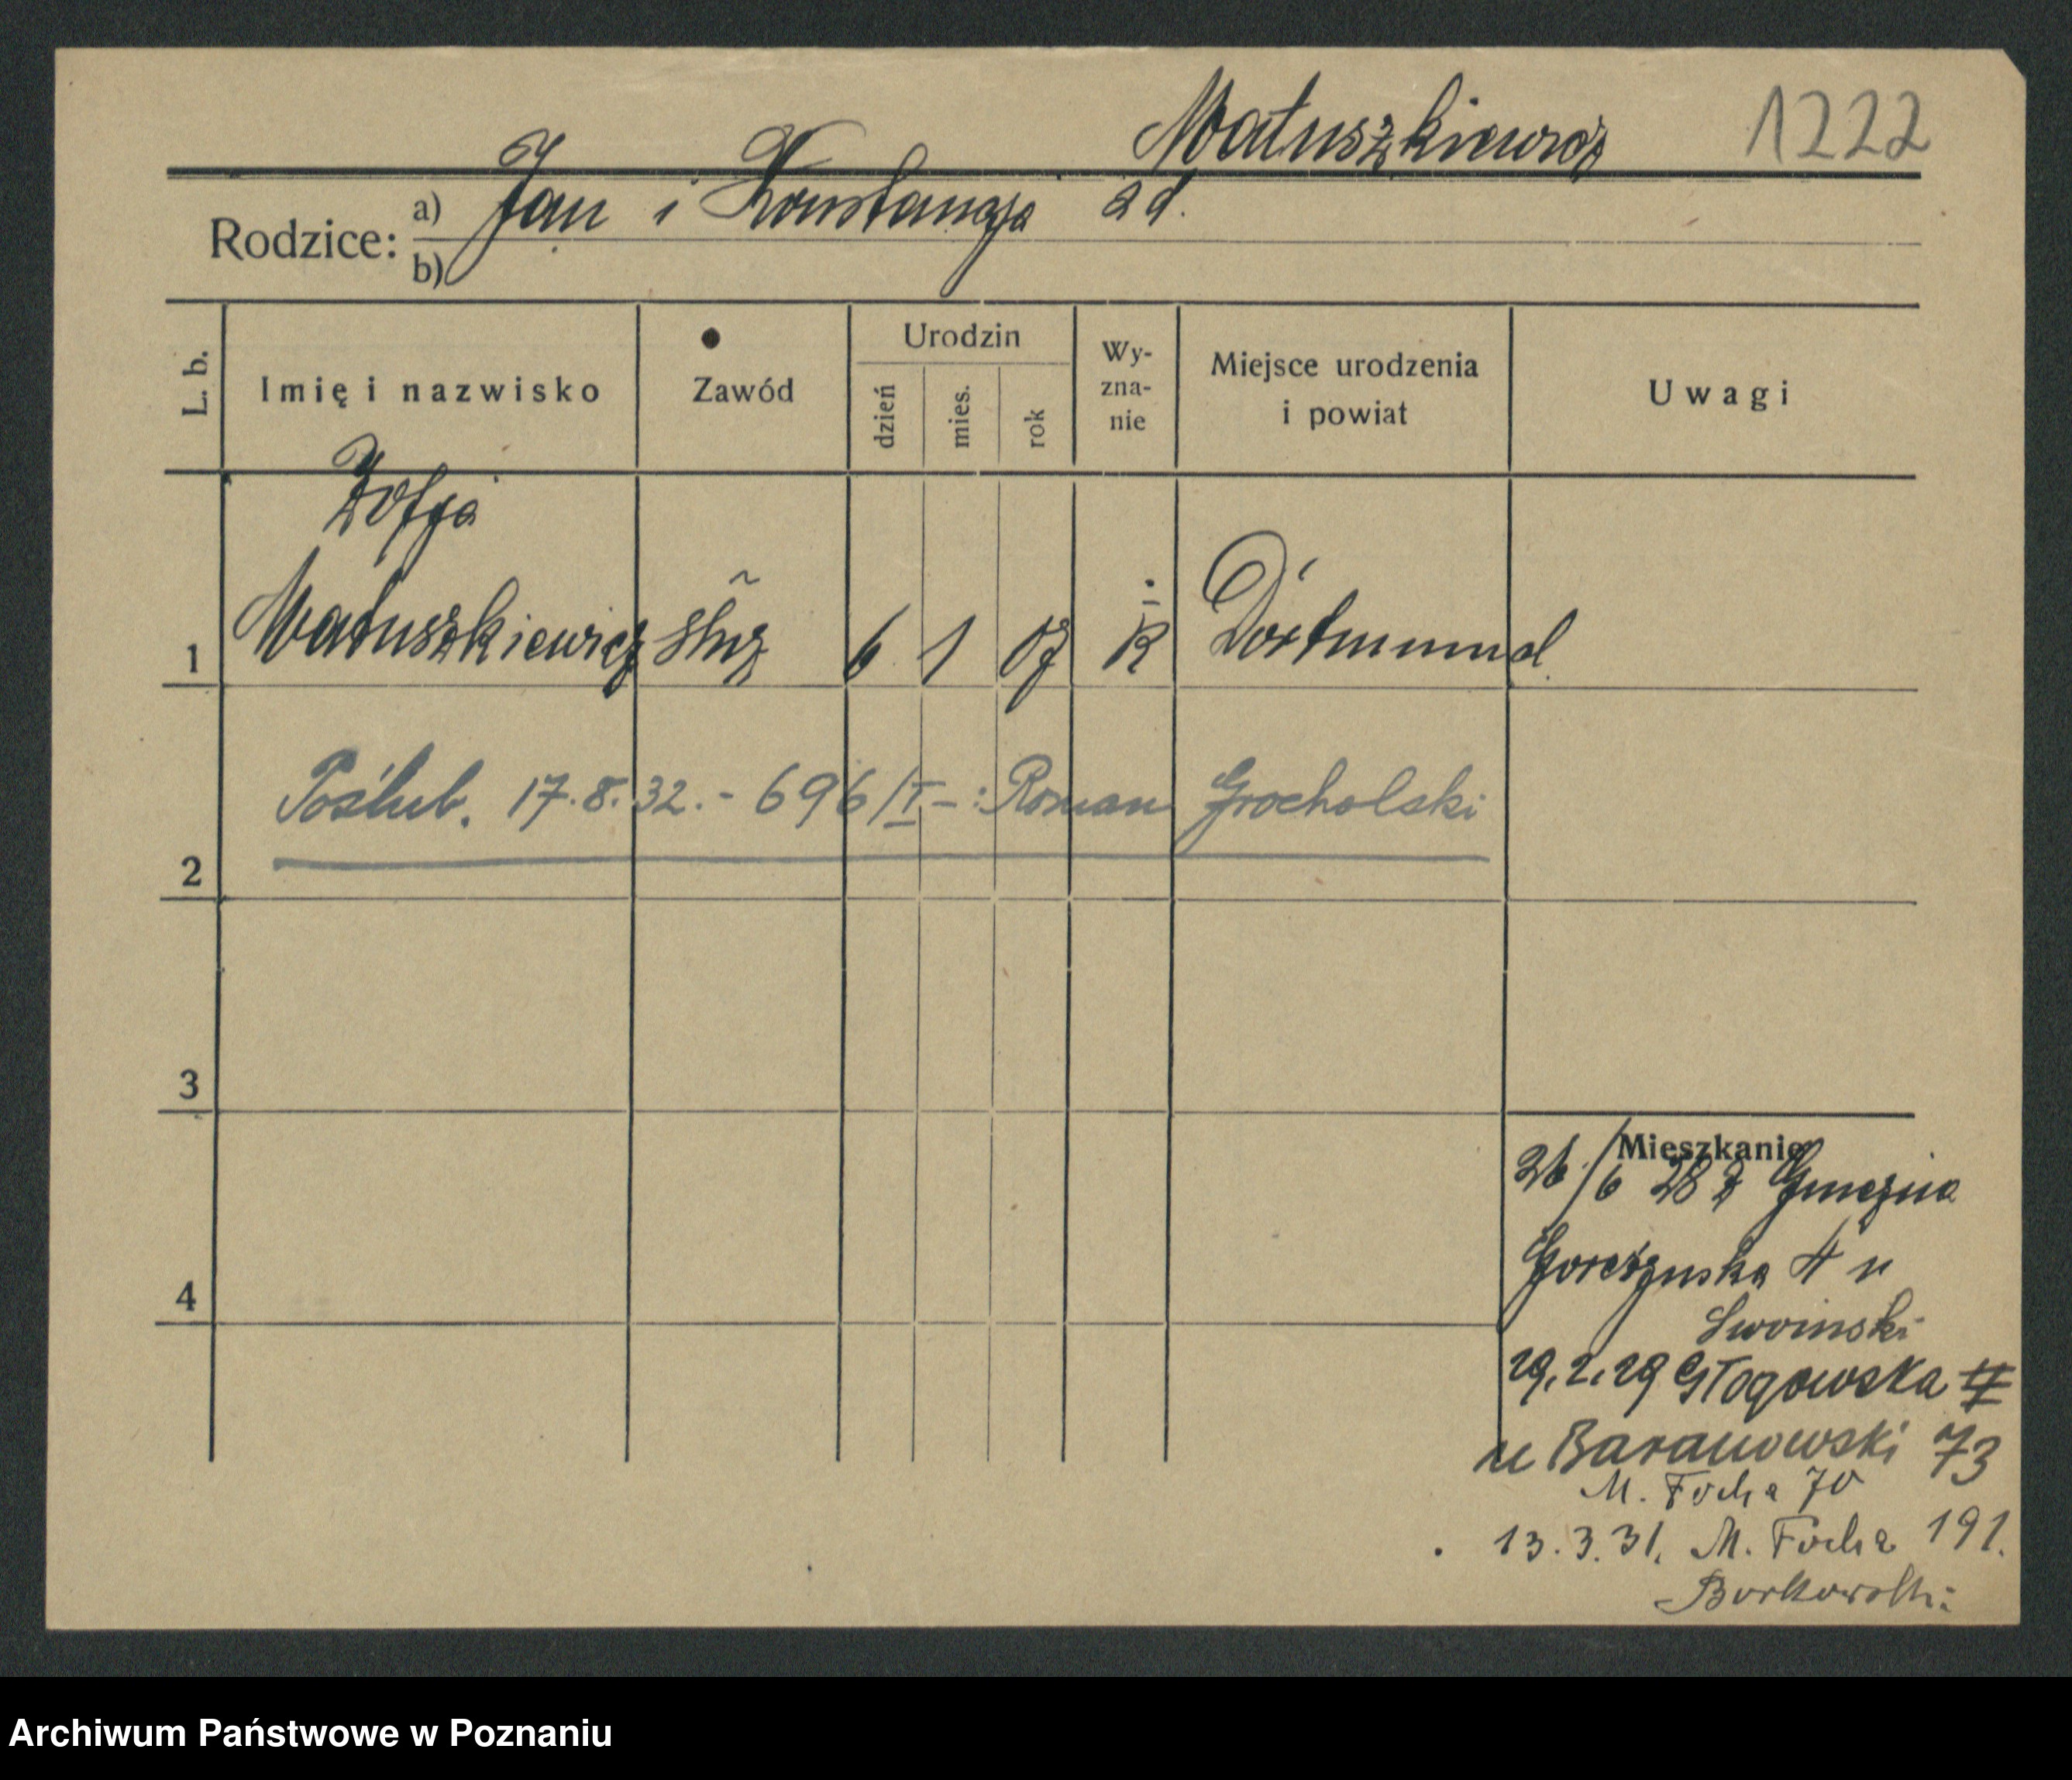 Matuszkiewicz 1222
Rodzice: a) Jan i Konstancja
b)
L. b. Imię i nazwisko Zawód Urodzin dzień mies. rok Wy-zna-nie Miejsce urodzenia i powiat Uwagi
Zofja
1 Matuszkiewicz służ 6 1 07 K Dortmund
Poślub. 17.8.32.- 696/I -: Roman Grocholski
2
3
Mieszkanie
26/6 28 z Gniezna
4
u
19.2.29 Głogowska
u Baranowski 73
M. Focha 70
13.3.31. M. Focha 191.
Borkowski
Archiwum Państwowe w Poznaniu